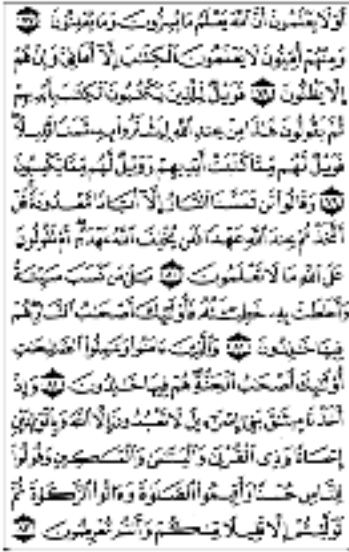 أَوَلَا يَعْلَمُونَ أَنَّ ٱللَّهَ يَعْلَمُ مَا يُسِرُّونَ وَمَا يُعْلِنُونَ
وَمِنْهُمْ أُمِّيُّونَ لَا يَعْلَمُونَ ٱلْكِتَٰبَ إِلَّآ أَمَانِىَّ وَإِنْ هُمْ
إِلَّا يَظُنُّونَ فَوَيْلٌ لِّلَّذِينَ يَكْتُبُونَ ٱلْكِتَٰبَ بِأَيْدِيهِمْ
ثُمَّ يَقُولُونَ هَٰذَا مِنْ عِندِ ٱللَّهِ لِيَشْتَرُوا۟ بِهِۦ ثَمَنًا قَلِيلًا
فَوَيْلٌ لَّهُم مِّمَّا كَتَبَتْ أَيْدِيهِمْ وَوَيْلٌ لَّهُم مِّمَّا يَكْسِبُونَ
وَقَالُوا۟ لَن تَمَسَّنَا ٱلنَّارُ إِلَّآ أَيَّامًا مَّعْدُودَةً قُلْ
أَتَّخَذْتُمْ عِندَ ٱللَّهِ عَهْدًا فَلَن يُخْلِفَ ٱللَّهُ عَهْدَهُۥٓ أَمْ تَقُولُونَ
عَلَى ٱللَّهِ مَا لَا تَعْلَمُونَ بَلَىٰ مَن كَسَبَ سَيِّئَةً
وَأَحَٰطَتْ بِهِۦ خَطِيٓـَٔتُهُۥ فَأُو۟لَٰٓئِكَ أَصْحَٰبُ ٱلنَّارِ هُمْ
فِيهَا خَٰلِدُونَ وَٱلَّذِينَ ءَامَنُوا۟ وَعَمِلُوا۟ ٱلصَّٰلِحَٰتِ
أُو۟لَٰٓئِكَ أَصْحَٰبُ ٱلْجَنَّةِ هُمْ فِيهَا خَٰلِدُونَ وَإِذْ
أَخَذْنَا مِيثَٰقَ بَنِىٓ إِسْرَٰٓءِيلَ لَا تَعْبُدُونَ إِلَّا ٱللَّهَ وَبِٱلْوَٰلِدَيْنِ
إِحْسَانًا وَذِى ٱلْقُرْبَىٰ وَٱلْيَتَٰمَىٰ وَٱلْمَسَٰكِينِ وَقُولُوا۟
لِلنَّاسِ حُسْنًا وَأَقِيمُوا۟ ٱلصَّلَوٰةَ وَءَاتُوا۟ ٱلزَّكَوٰةَ ثُمَّ
تَوَلَّيْتُمْ إِلَّا قَلِيلًا مِّنكُمْ وَأَنتُم مُّعْرِضُونَ